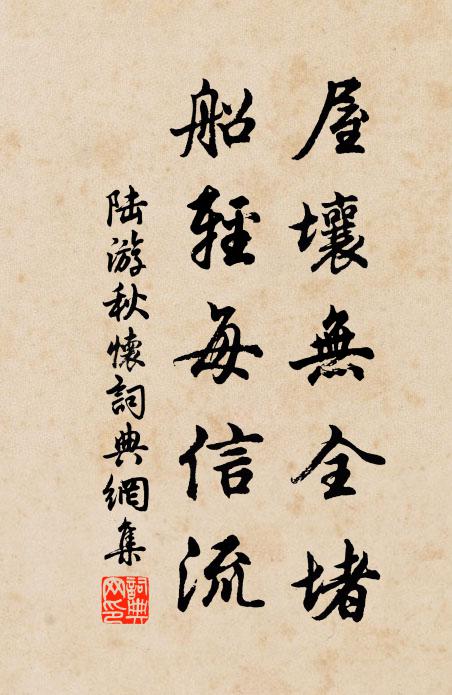 屋壤無全堵
船輕每信流
陆游秋懷詞典網集
詞典網印